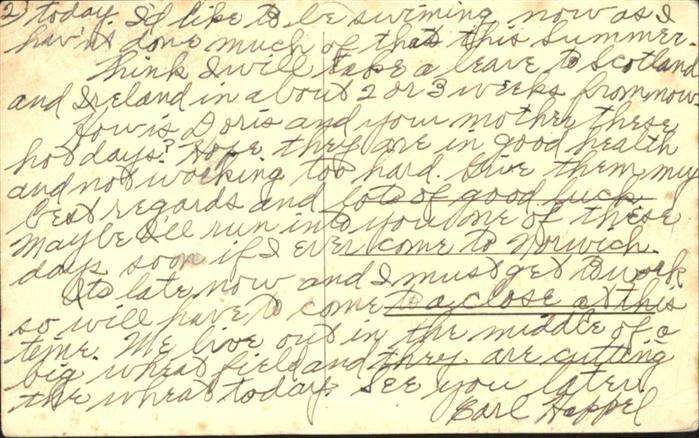 2) today. I'd like to be swiming now as I
hav'nt done much of that this summer.
Think I will take a leave to Scotland
and Ireland in about 2 or 3 weeks from now
How is Doris and your mother these
hot days? Hope they are in good health
and not working too hard. Give them my
best regards and lots of good luck.
Maybe I'll run into you one of these
days soon if I ever come to Norwich.
Its late now and I must get to work
so will have to come to a close at this
time. We live out in the middle of a
big wheat field and they are cutting
the wheat today. See you later
Earl Heppel